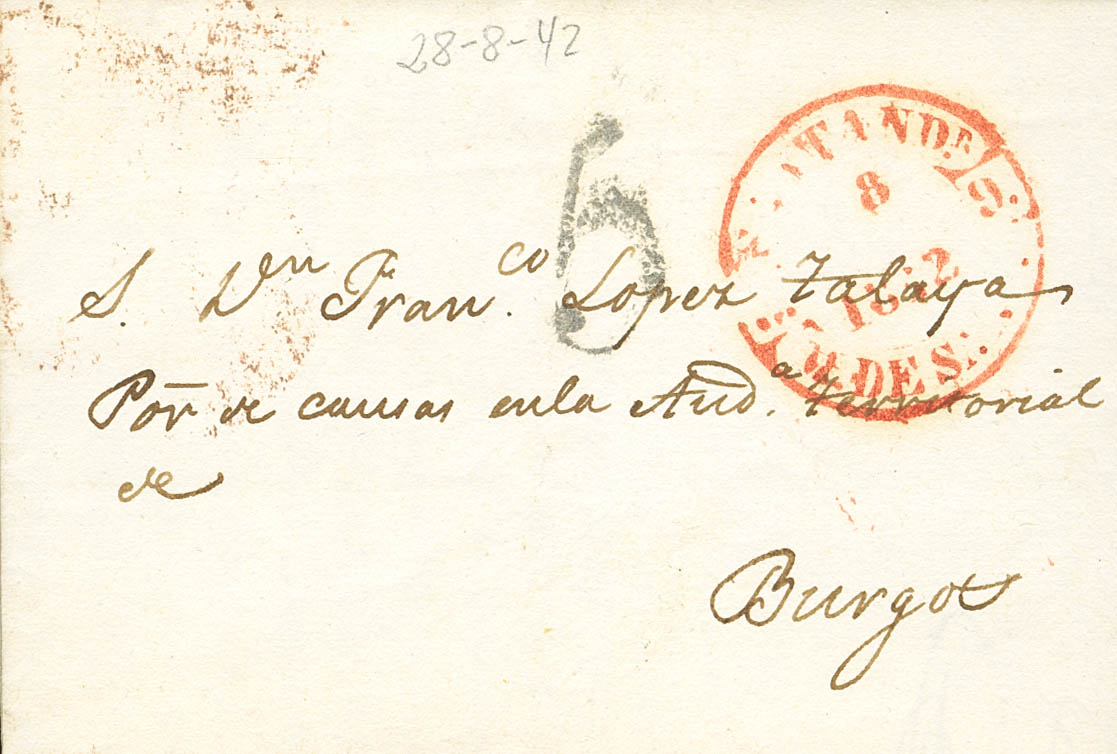 28-8-42
6
8
1842
S. Dⁿ Franᶜᵒ. Lopez Zalaya
Por de causas enla Audᵃ. territorial
de
Burgos